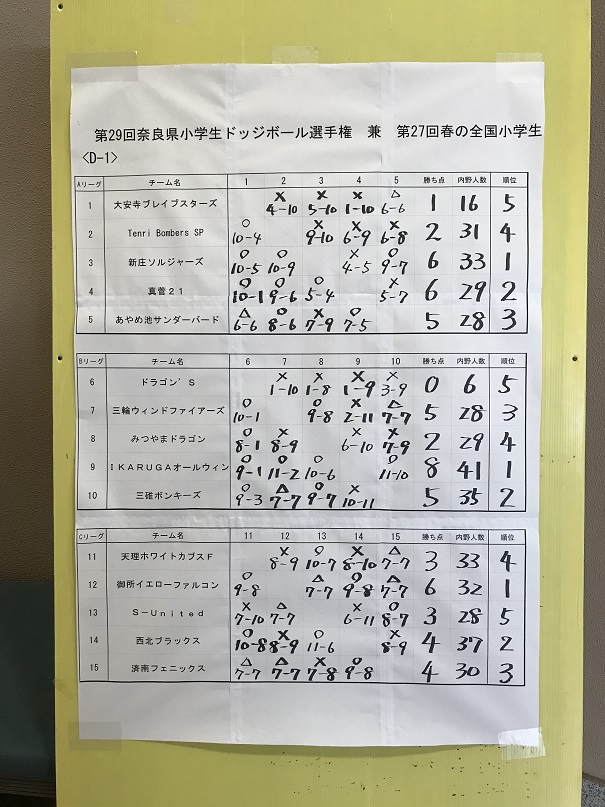 第29回奈良県小学生ドッジボール選手権 兼 第27回春の全国小学生
<D-1>
Aリーグ チーム名 1 2 3 4 5 勝ち点 内野人数 順位
1 大安寺ブレイブスターズ × 4-10 × 5-10 × 1-10 △ 6-6 1 16 5
2 Tenri Bombers SP ○ 10-4 × 9-10 × 6-9 × 6-8 2 31 4
3 新庄ソルジャーズ ○ 10-5 ○ 10-9 × 4-5 ○ 9-7 6 33 1
4 真菅21 ○ 10-1 ○ 9-6 ○ 5-4 × 5-7 6 29 2
5 あやめ池サンダーバード △ 6-6 ○ 8-6 × 7-9 ○ 7-5 5 28 3
Bリーグ チーム名 6 7 8 9 10 勝ち点 内野人数 順位
6 ドラゴン'S × 1-10 × 1-8 × 1-9 × 3-9 0 6 5
7 三輪ウィンドファイアーズ ○ 10-1 ○ 9-8 × 2-11 △ 7-7 5 28 3
8 みつやまドラゴン ○ 8-1 × 8-9 × 6-10 × 7-9 2 29 4
9 IKARUGAオールウィン ○ 9-1 ○ 11-2 ○ 10-6 ○ 11-10 8 41 1
10 三碓ボンキーズ ○ 9-3 △ 7-7 ○ 9-7 × 10-11 5 35 2
Cリーグ チーム名 11 12 13 14 15 勝ち点 内野人数 順位
11 天理ホワイトカブスF × 8-9 ○ 10-7 × 8-10 △ 7-7 3 33 4
12 御所イエローファルコン ○ 9-8 △ 7-7 ○ 9-8 △ 7-7 6 32 1
13 S-United × 7-10 △ 7-7 × 6-11 ○ 8-7 3 28 5
14 西北ブラックス ○ 10-8 × 8-9 ○ 11-6 × 8-9 4 37 2
15 済南フェニックス △ 7-7 △ 7-7 × 7-8 ○ 9-8 4 30 3